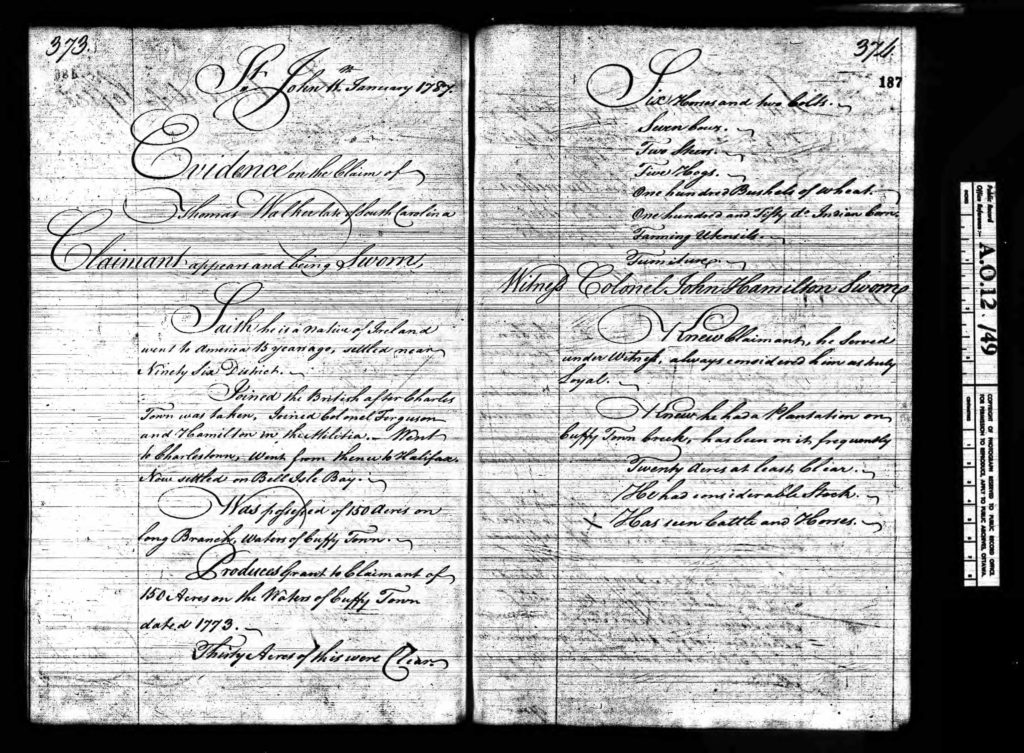 373.
St. John 11th January 1787.
Evidence on the Claim of
Thomas Walker late of South Carolina
Claimant appears and being Sworn,
Saith he is a native of Ireland
went to America 13 years ago, settled near
Ninety Six District.
Joined the British after Charles
Town was taken, Joined Colonel Ferguson
and Hamilton in the Militia. Went
to Charlestown, went from thence to Halifax.
Now settled on Bell Isle Bay.
Was possessed of 150 Acres on
long Branch, waters of Cuffy Town.
Produces Grant to Claimant of
150 Acres on the Waters of Cuffy Town
dated 1773.
Thirty Acres of this were Clear
374
187
Six Horses and two Colts.
Seven Cows.
Two Steers.
Five Hogs.
One hundred Bushels of wheat.
One hundred and Fifty do. Indian Corn.
Tanning Utensils.
Furniture.
Witness Colonel John Hamilton Sworn
Knew Claimant, he served
under Witness, always considered him as truly
Loyal.
Knew he had a Plantation on
Cuffy Town Creek, has been on it, frequently
Twenty Acres at least Clear.
He had considerable Stock.
x Has seen Cattle and Horses.
Public Record
Office Reference:-
A.O.12 /49
COPYRIGHT OF PHOTOGRAPH RESERVED TO PUBLIC RECORD OFFICE
FOR PERMISSION TO REPRODUCE APPLY TO PUBLIC ARCHIVES, OTTAWA.